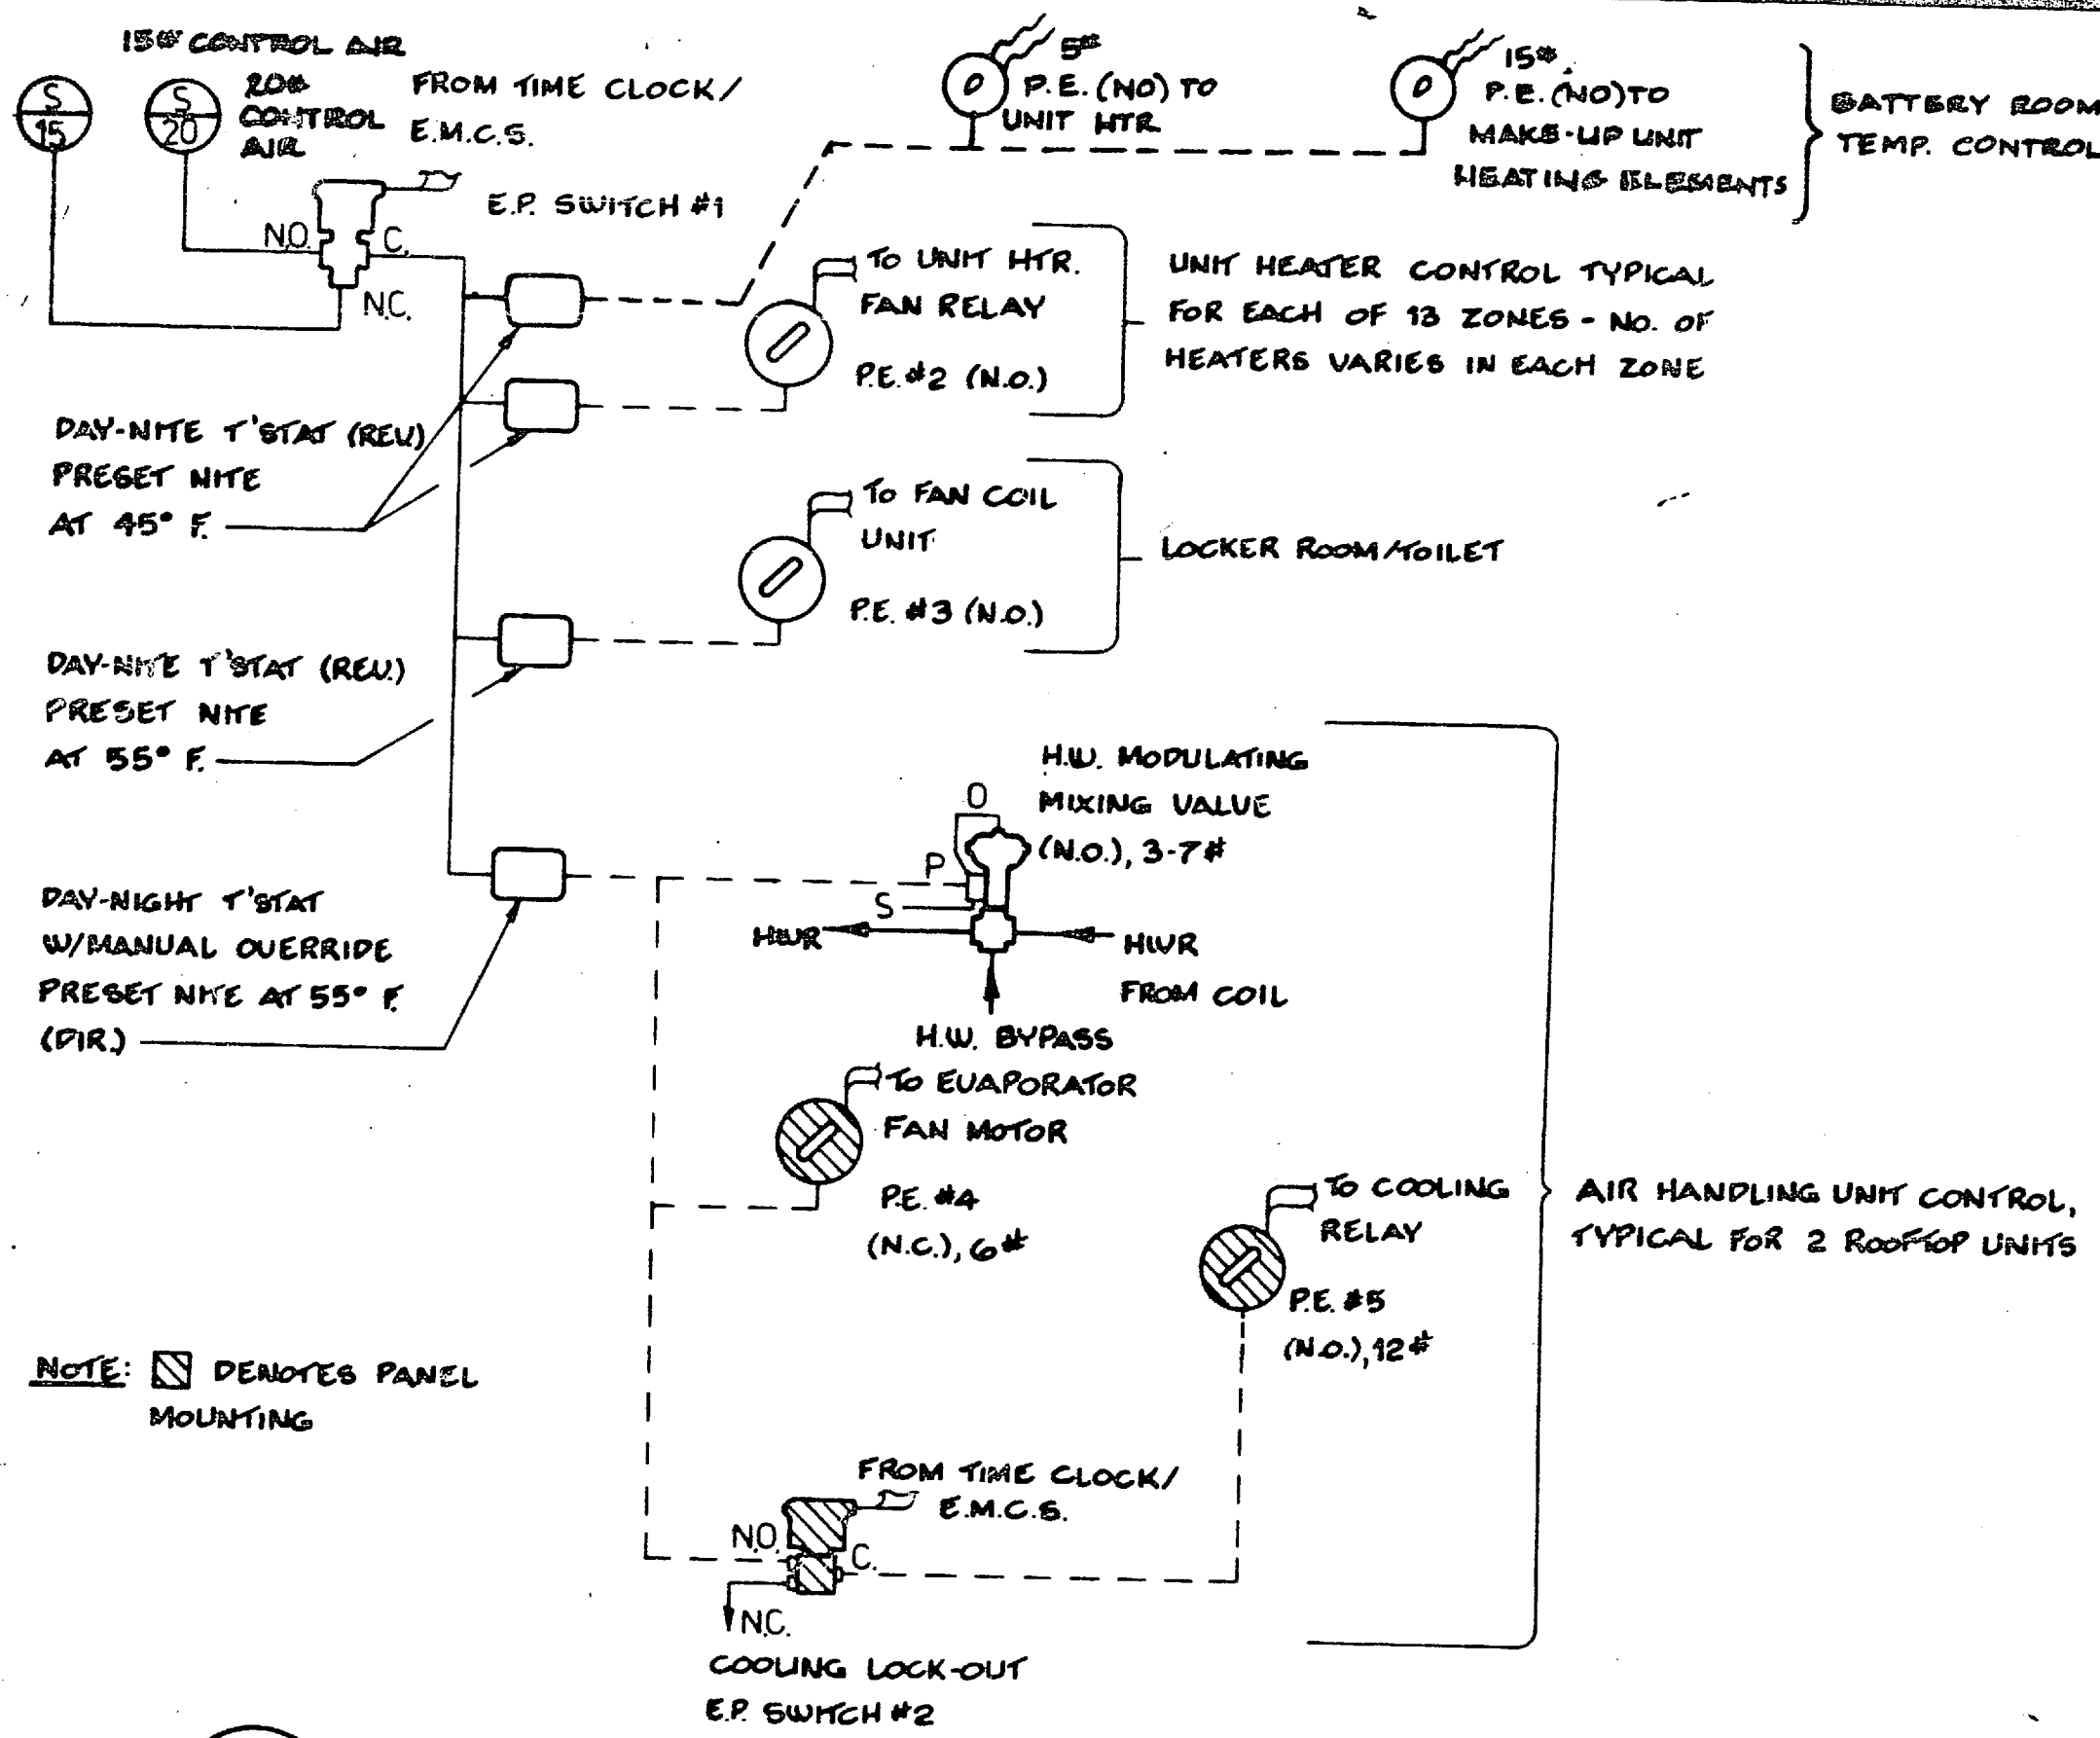 15# CONTROL AIR
S
15
S
20
20#
CONTROL
AIR
FROM TIME CLOCK/
E.M.C.S.
E.P. SWITCH #1
N.O.
C.
N.C.
5#
P.E. (NO) TO
UNIT HTR
15#
P.E. (NO) TO
MAKE-UP UNIT
HEATING ELEMENTS
BATTERY ROOM
TEMP. CONTROL
TO UNIT HTR.
FAN RELAY
P.E. #2 (N.O.)
UNIT HEATER CONTROL TYPICAL
FOR EACH OF 13 ZONES - NO. OF
HEATERS VARIES IN EACH ZONE
DAY-NITE T'STAT (REV)
PRESET NITE
AT 45° F.
TO FAN COIL
UNIT
P.E. #3 (N.O.)
LOCKER ROOM/TOILET
DAY-NITE T'STAT (REV.)
PRESET NITE
AT 55° F.
H.W. MODULATING
MIXING VALVE
(N.O.), 3-7#
O
P
S
HWR
HWR
FROM COIL
H.W. BYPASS
DAY-NIGHT T'STAT
W/MANUAL OVERRIDE
PRESET NITE AT 55° F.
(DIR.)
TO EVAPORATOR
FAN MOTOR
P.E. #4
(N.C.), 6#
TO COOLING
RELAY
P.E. #5
(N.O.), 12#
AIR HANDLING UNIT CONTROL,
TYPICAL FOR 2 ROOFTOP UNITS
NOTE: DENOTES PANEL
MOUNTING
FROM TIME CLOCK/
E.M.C.S.
N.O.
C.
N.C.
COOLING LOCK-OUT
E.P. SWITCH #2